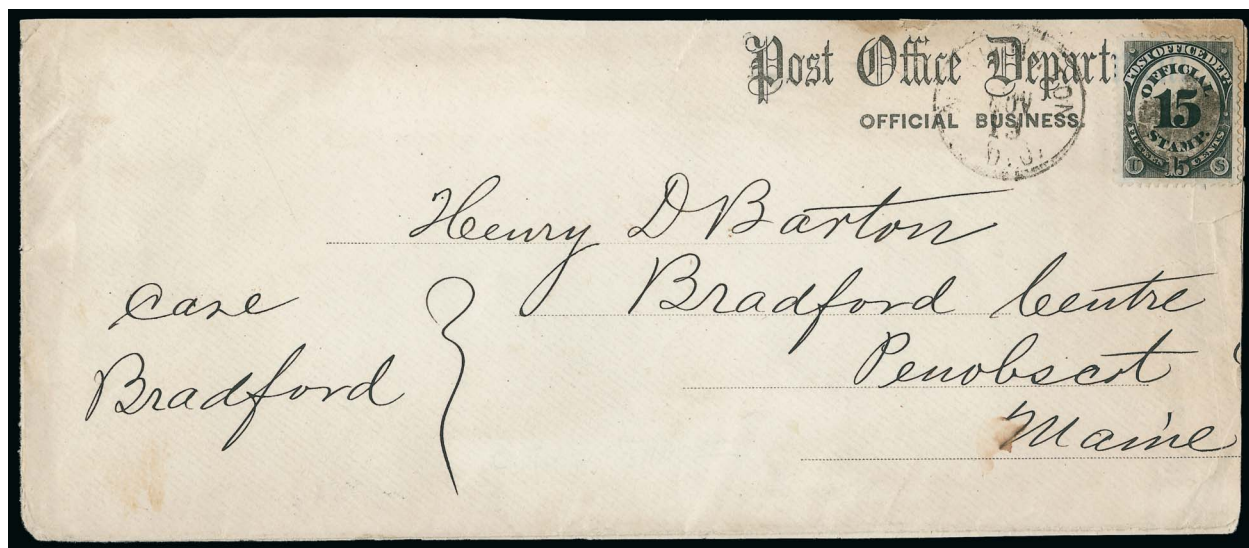 Post Office Depart
OFFICIAL BUSINESS.
NOV
D.C.
POST OFFICE DEPT.
OFFICIAL
15
STAMP.
FIFTEEN CENTS
U 15 S
Henry D Barton
Bradford Centre
Penobscot
Maine
Case
Bradford